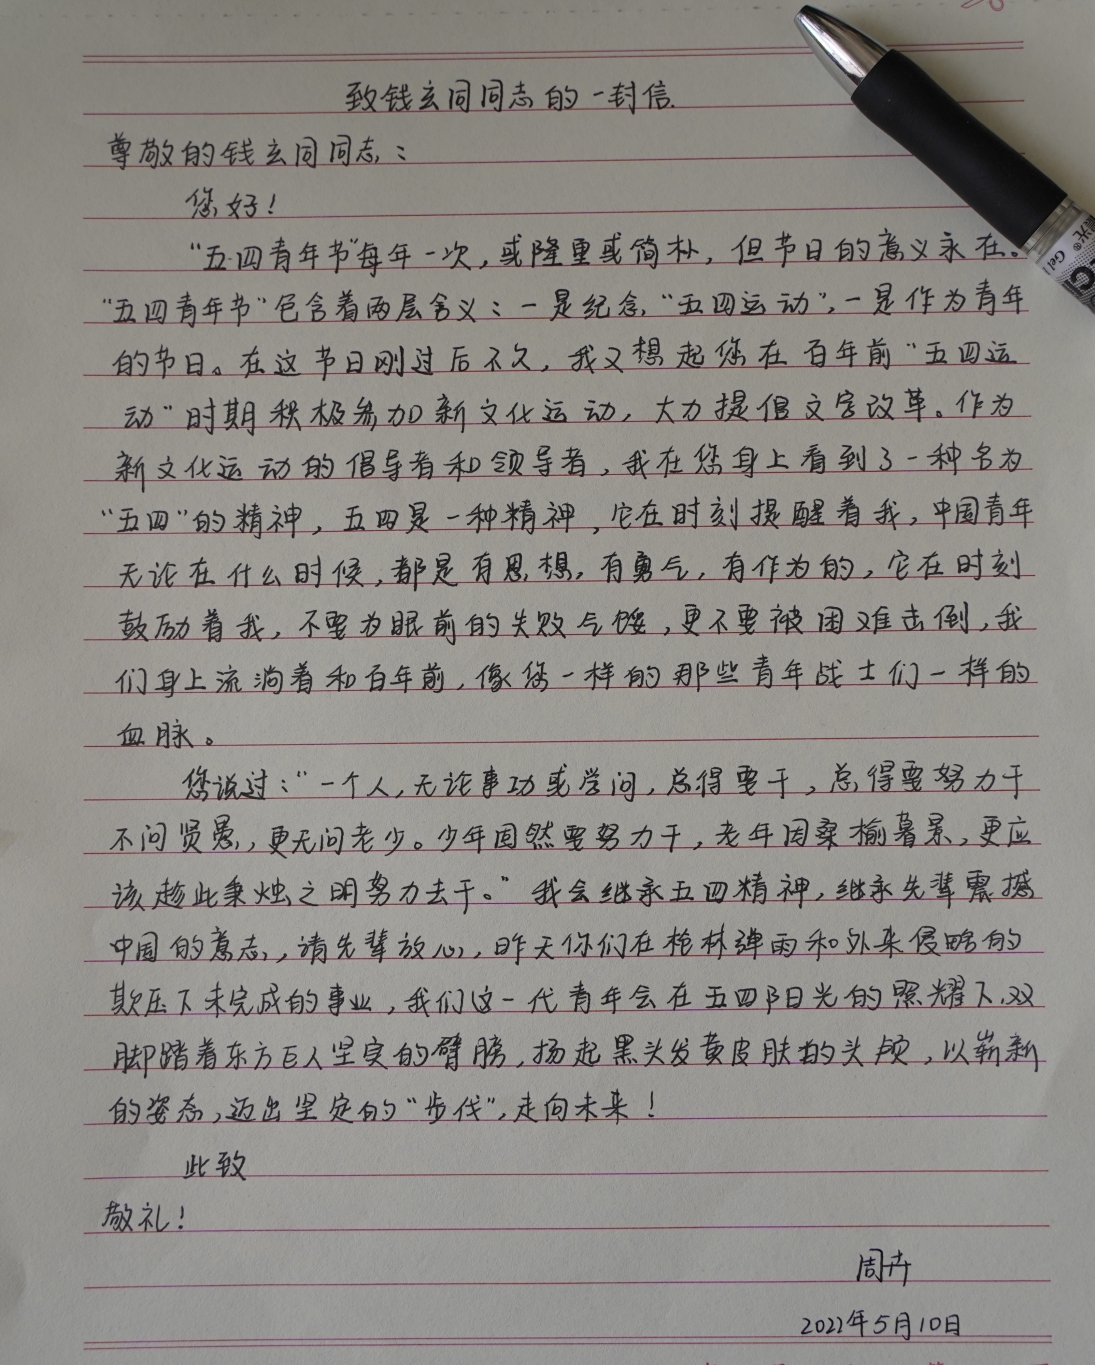 致钱玄同同志的一封信
尊敬的钱玄同同志：
您好！
“五·四青年节”每年一次，或隆重或简朴，但节日的意义永在。
“五四青年节”包含着两层含义：一是纪念“五四运动”，一是作为青年
的节日。在这节日刚过后不久，我又想起您在百年前“五四运
动”时期积极参加新文化运动，大力提倡文字改革。作为
新文化运动的倡导者和领导者，我在您身上看到了一种名为
“五四”的精神，五四是一种精神，它在时刻提醒着我，中国青年
无论在什么时候，都是有思想，有勇气，有作为的，它在时刻
鼓励着我，不要为眼前的失败气馁，更不要被困难击倒，我
们身上流淌着和百年前，像您一样的那些青年战士们一样的
血脉。
您说过：“一个人，无论事功或学问，总得要干，总得要努力干
不问贤愚，更无问老少。少年固然要努力干，老年因桑榆暮景，更应
该趁此秉烛之明努力去干。”我会继承五四精神，继承先辈震撼
中国的意志，请先辈放心，昨天你们在枪林弹雨和外来侵略的
欺压下未完成的事业，我们这一代青年会在五四阳光的照耀下，双
脚踏着东方巨人坚实的臂膀，扬起黑头发黄皮肤的头颅，以崭新
的姿态，迈出坚定的“步伐”，走向未来！
此致
敬礼！
周卉
2022年5月10日
Gel